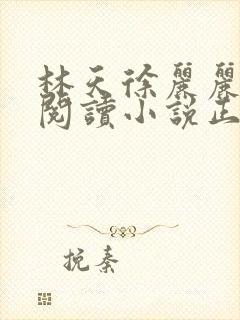 林天徐麗麗
閱讀小說正
挽秦